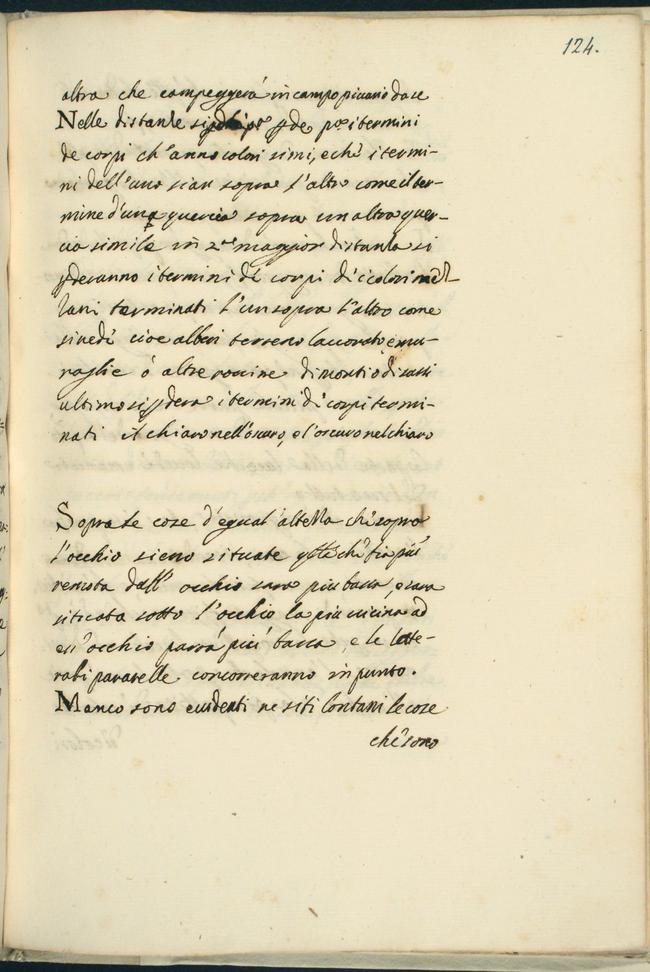 124.
altra che campeggerá in campo piu uario da se
Nelle distanze si pde pº i termini
de corpi ch'anno colori simi, e chè i termi-
ni dell'uno sian sopra l'altro come il ter-
mine d'una quercia sopra un altra quer-
cia simile in 2º maggior distanza si
pderanno i termini dè corpi di colori mez-
zani terminati l'un sopra l'altro come
si uedè cioe alberi terreno lauorato è mu-
raglie ó altre rouine di monti ò di sassi
ultimo si pdera i termini dè corpi termi-
nati il chiaro nell'oscuro, e l'oscuro nel chiaro
Sopra le cose d'egual'altezza chè sopra
l'occhio sieno situate qlla chè fia più
remota dall' occhio sara piu bassa, e sara
situata sotto l'occhio la piu uicina ad
ess'occhio parrá piú bassa, e le latte-
rali paralelle concorreranno in punto.
Manco sono euidenti ne siti lontani le cose
chè sono